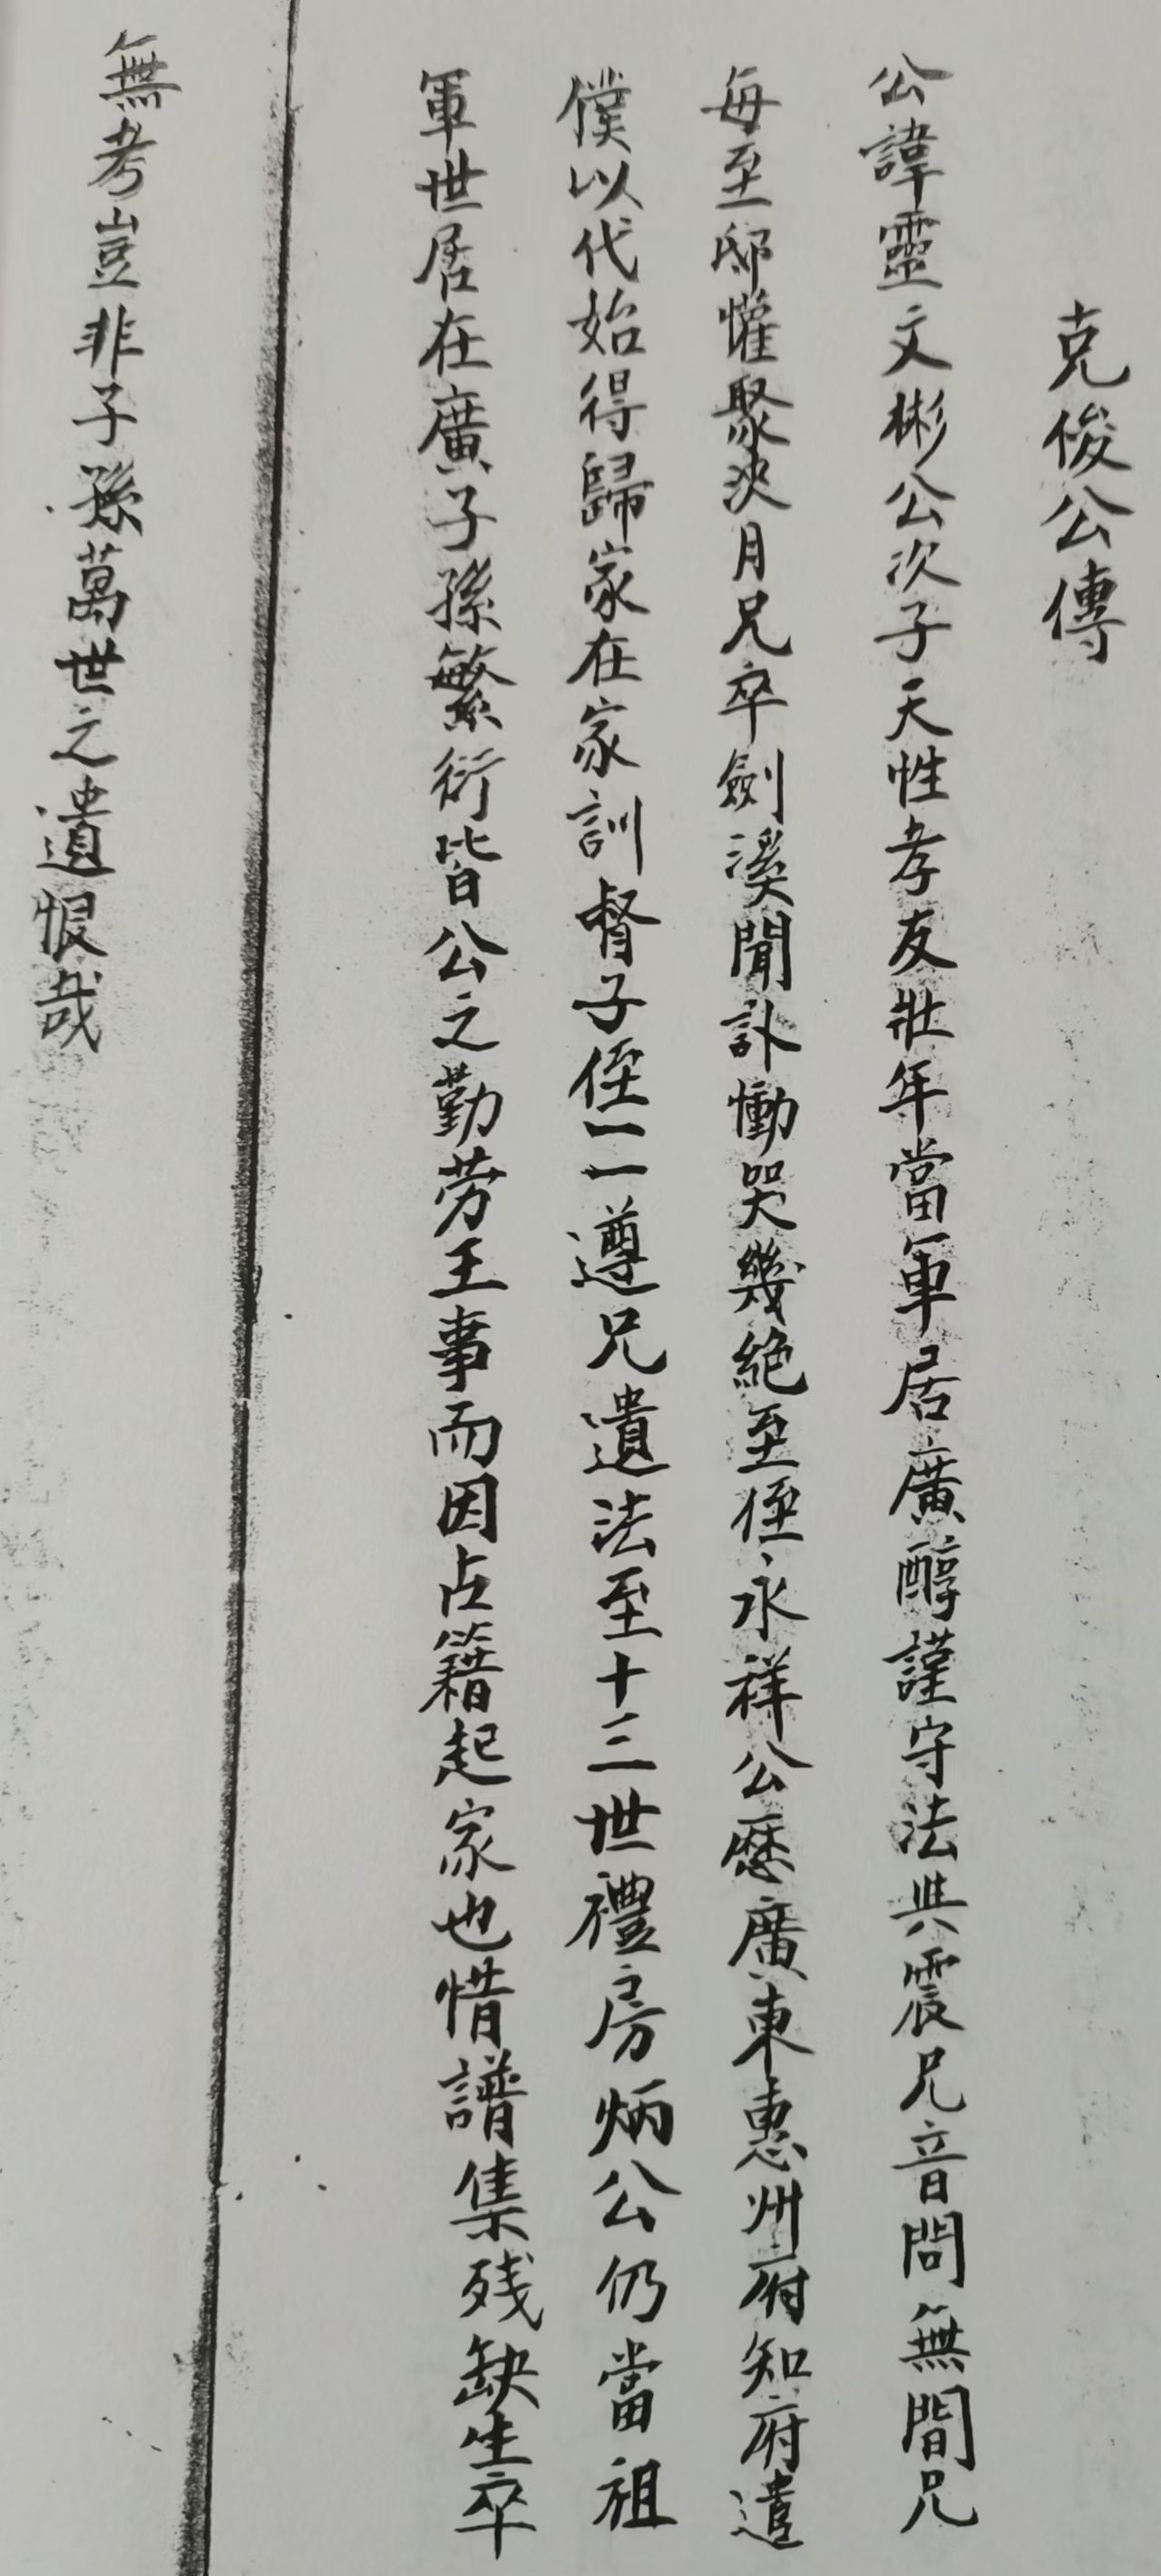 克俊公傳
公諱靈文彬公次子天性孝友壯年當軍居廣醇謹守法與震兄音問無間兄
每至邸懽聚浹月兄卒劍溪聞訃慟哭幾絶至侄永祥公歷廣東惠州府知府遣
僕以代始得歸家在家訓督子侄一一遵兄遺法至十三世禮房炳公仍當祖
軍世居在廣子孫繁衍皆公之勤劳王事而因占籍起家也惜譜集残缺生卒
無考豈非子孫萬世之遺恨哉